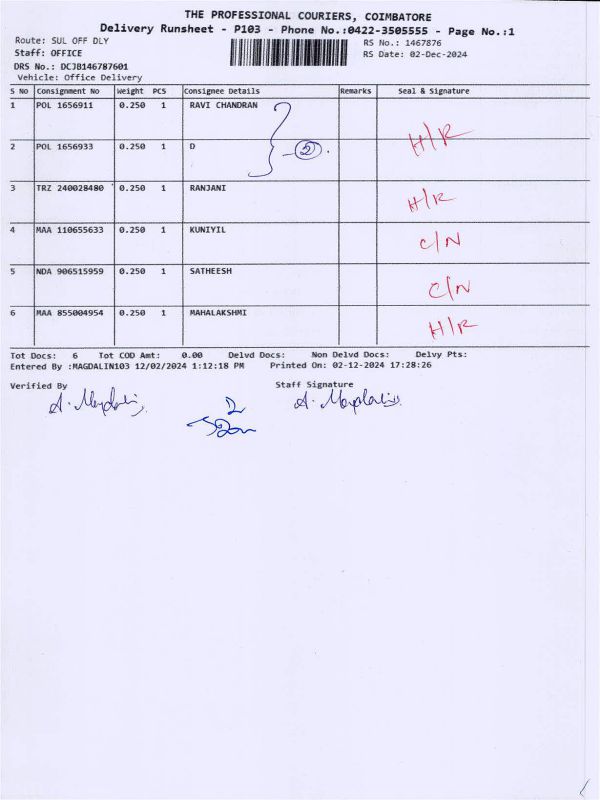 THE PROFESSIONAL COURIERS, COIMBATORE
Delivery Runsheet - P103 - Phone No.:0422-3505555 - Page No.:1
Route: SUL OFF DLY RS No.: 1467876
Staff: OFFICE RS Date: 02-Dec-2024
DRS No.: DCJB146787601
Vehicle: Office Delivery
S No Consignment No Weight PCS Consignee Details Remarks Seal & Signature
1 POL 1656911 0.250 1 RAVI CHANDRAN
H/R
2 POL 1656933 0.250 1 D 2
3 TRZ 240028480 0.250 1 RANJANI H/R
4 MAA 110655633 0.250 1 KUNIYIL C/N
5 NDA 906515959 0.250 1 SATHEESH C/N
6 MAA 855004954 0.250 1 MAHALAKSHMI H/R
Tot Docs: 6 Tot COD Amt: 0.00 Delvd Docs: Non Delvd Docs: Delvy Pts:
Entered By :MAGDALIN103 12/02/2024 1:12:18 PM Printed On: 02-12-2024 17:28:26
Verified By Staff Signature